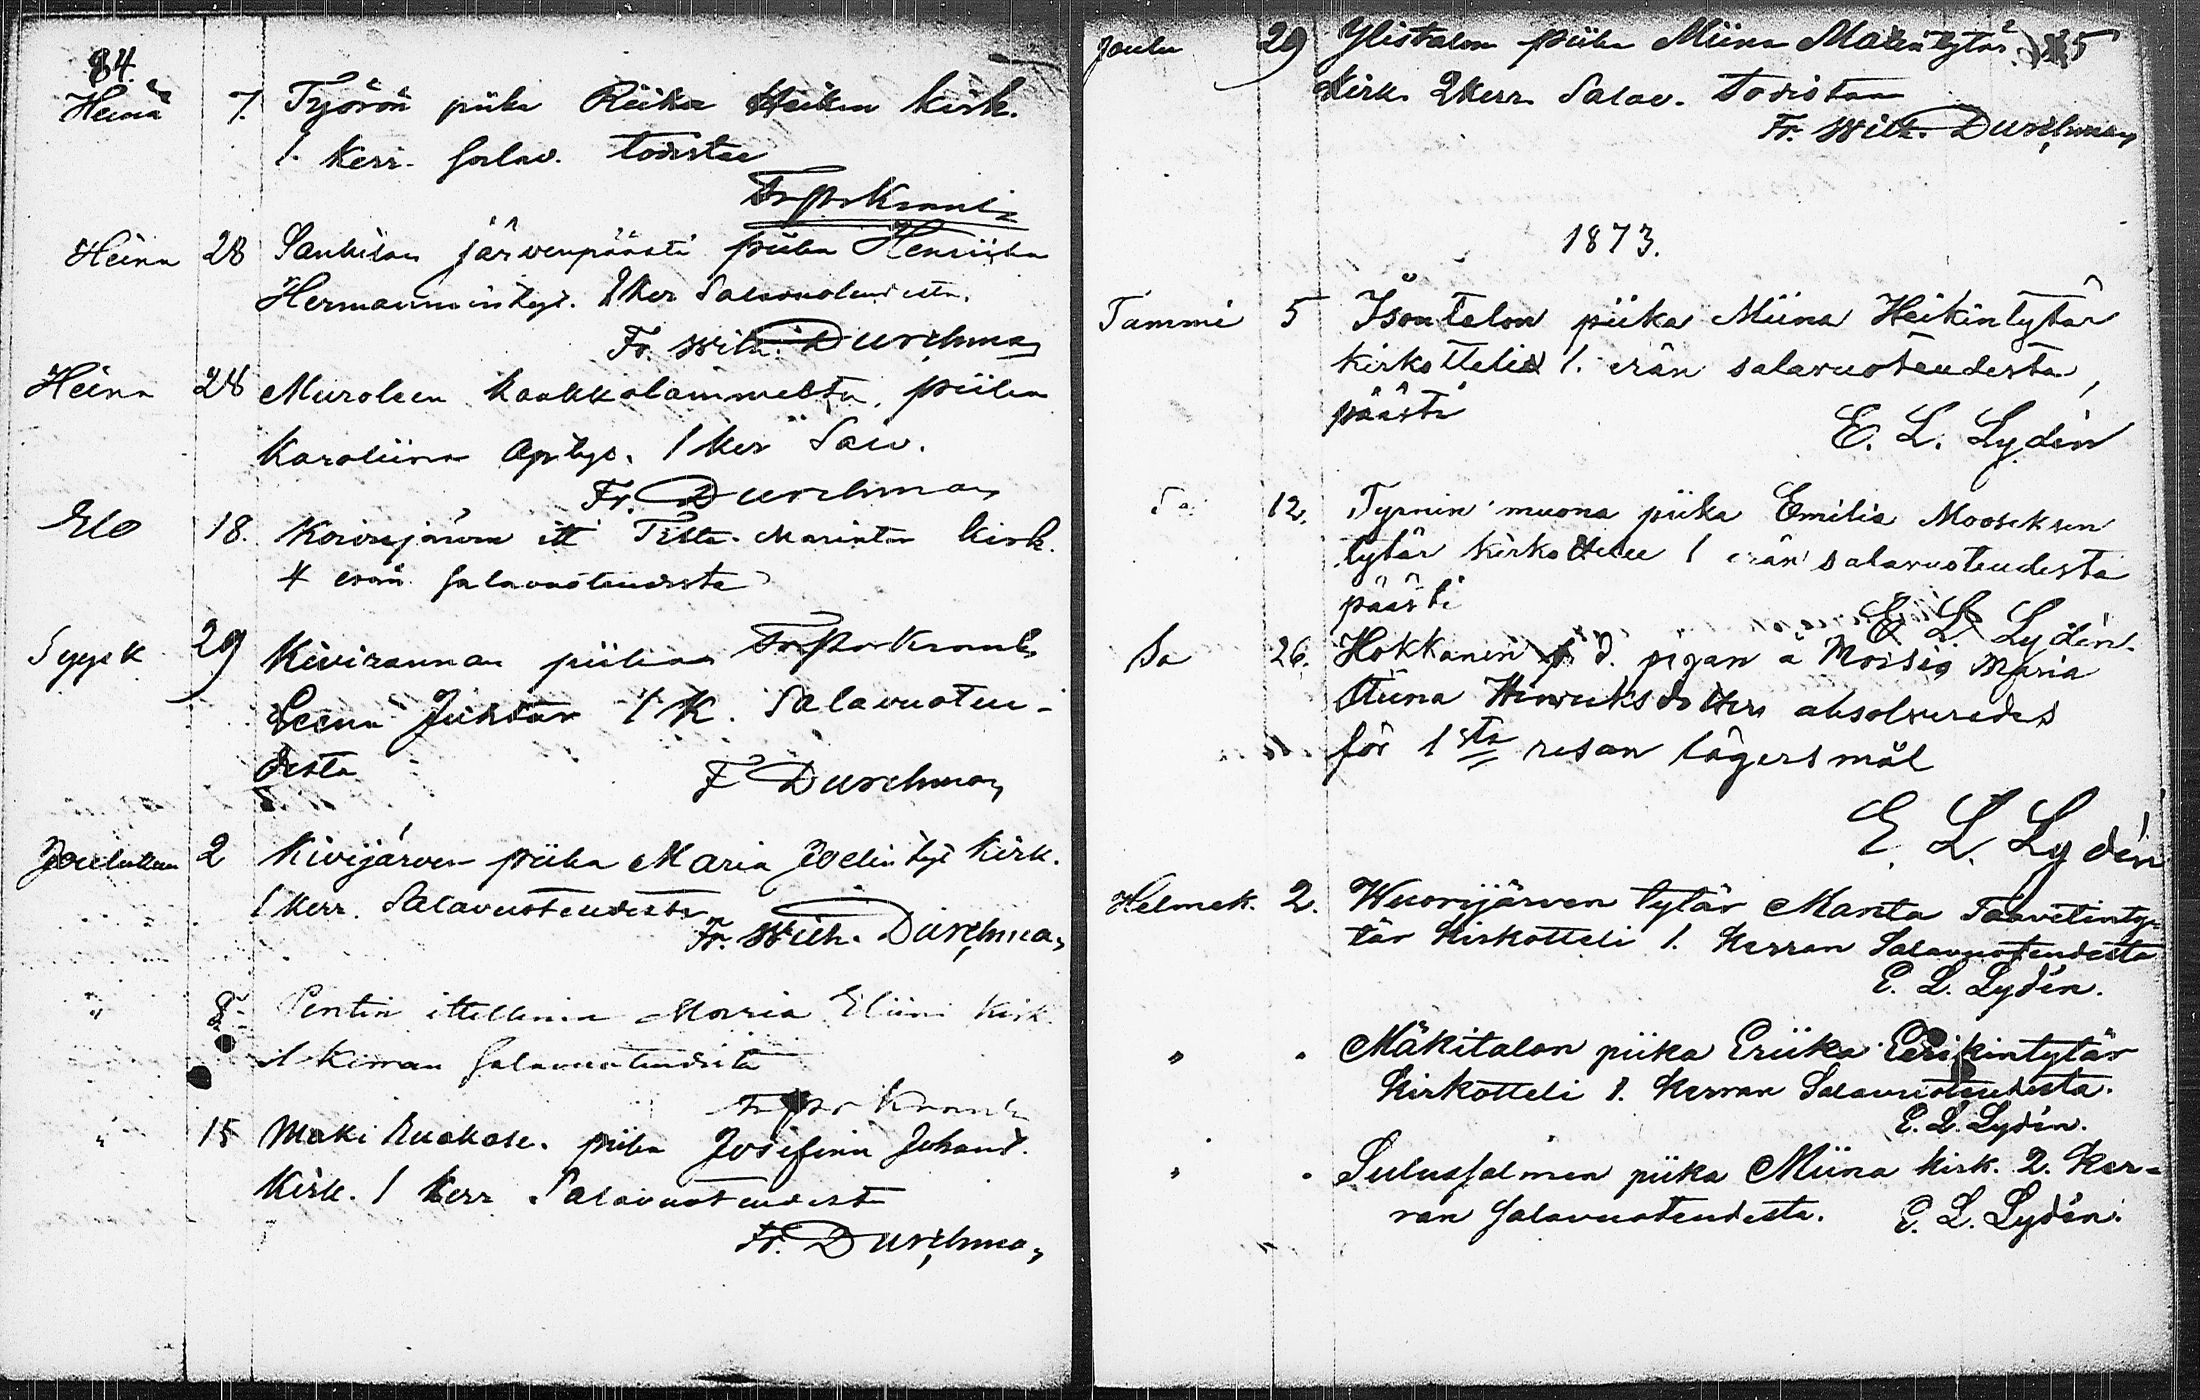 84.
Heinä 7. Työrön piika Riika Heikin kirk.
1. kerr. salav. todistae
Heinä 28 järvenpäästä piika Henriika
Hermannintyt. 1 ker Salavuoteudesta.
Fr. Wilh. Durchman
Heinä 28 Muroleen kaakkolammelta, piika
Karoliina Aptyt. 1 ker Salv.
Fr. Durchman
Elo 18. Koirusjärven itt Marintr kirk.
4 erän salavuoteudesta
Syysk 29 Kivirannan piika
Leena Juhtär 1 K. Salavuoteu-
desta
F Durchman
2 Kivijärven piika Maria Joelin tyt kirk.
1 kerr. Salavuoteudesta
Fr. Wilh. Durchman
" 8 Pentin itellinen Maria Eliina kirk.
1 kerran salavuoteudesta
" 15 piika Josefina Johand.
Kirk. 1 kerr Salavuoteudesta
Fr. Durchman
Joulu 29 Ylistalon piika Miina Matintytär 5
kirk. 2 kerr. Salav. todistaa
Fr. Wilh. Durchman
1873.
Tammi 5 Isontalon piika Miina Heikintytär
kirkotteliz 1. erän salavuoteudesta,
päästi
E. L. Lydén
12. Tyrnin muona piika Emilia Mooseksen
tytär kirkottelee 1 erän salavuoteudesta
päästi
E L Lydén.
Sa 26. Hokkanen d. pigan å Moisio Maria
Stiina Henriksdotter absolverades
för 1sta resan lägersmål
E. L. Lydén
Helmek. 2. Wuorijärven tytär Manta Taavetinty-
tär kirkotteli 1. kerran Salavuoteudesta
E. L. Lydén.
" " Mäkitalon piika Eriika Eerikintytär
kirkotteli 1. kerran Salavuoteudesta.
E. L. Lydén.
" " Sulussalmen piika Miina kirk. 2. ker-
ran salavuoteudesta. E. L. Lydén.